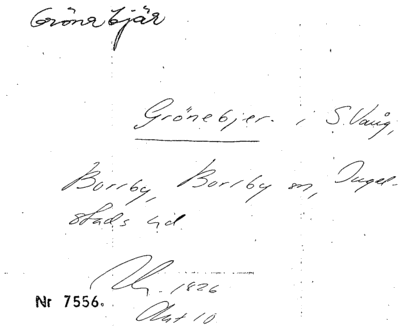 Gröna bjär
Grönebjer. i S. Vång,
Borrby, Borrby sn, Ingel-
stads hd
1826
Nr 7556.
Akt 10